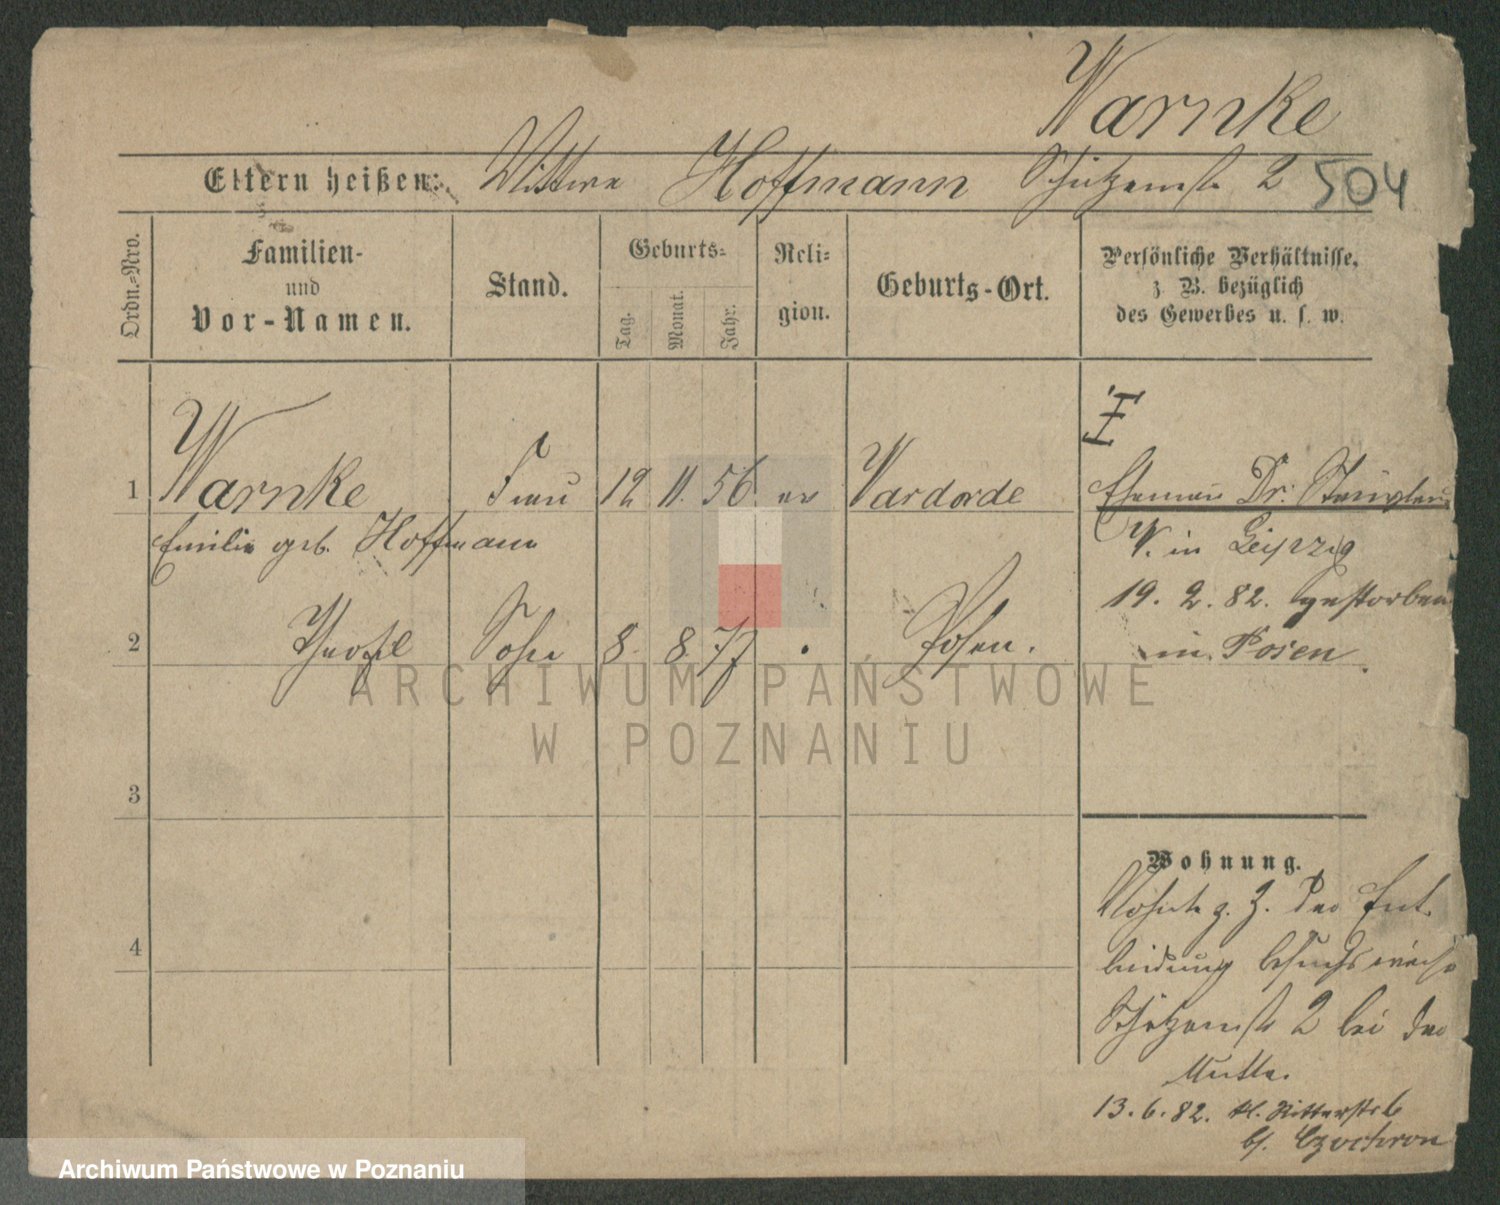 Warnke
Eltern heißen: Wittwe Hoffmann Schützenstr. 2 504
Ordn.-Nro. Familien- und Vor-Namen. Stand. Geburts- Tag. Monat. Jahr. Reli-gion. Geburts-Ort. Persönliche Verhältnisse, z. B. bezüglich des Gewerbes u. s. w.
I
1 Warnke Frau 12 11. 56 ev Vardorde Ehemann Dr.
Emilie geb. Hoffmann W. in Leipzig
19. 2. 82. gestorben
2 Sohn 8. 8. 77 Posen. in Posen.
3
Wohnung.
Wohnte z. Z. der Ent
4 bindung besuchsweise
Schützenstr 2 bei der
Mutter.
13. 6. 82. kl. Ritterstr 6
ARCHIWUM PAŃSTWOWE
W POZNANIU
Archiwum Państwowe w Poznaniu